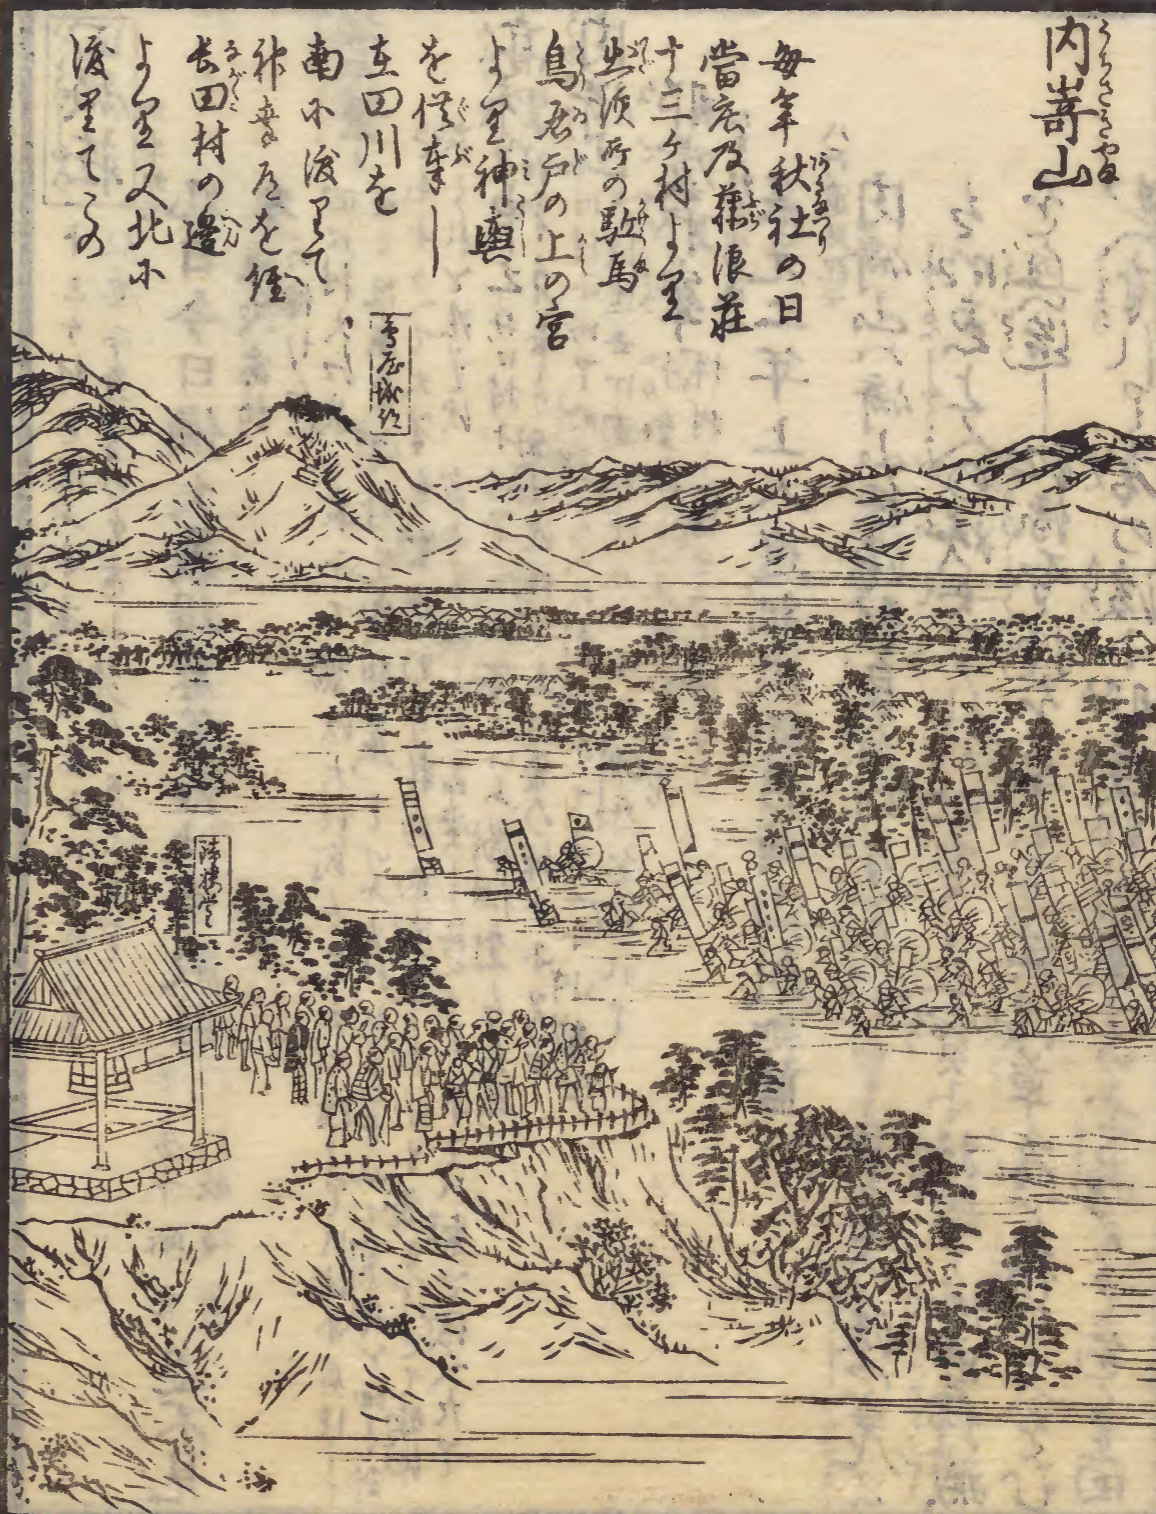 内嵜山
毎年秋社の日
當荘及藤浪荘
十三ケ村より
出須所の駈馬
鳥居戸の上の宮
より神輿
を供奉し
在田川を
南に渡りて
神幸道を經
長田村の邉
より又北に
渡りてこの
鳥屋城跡